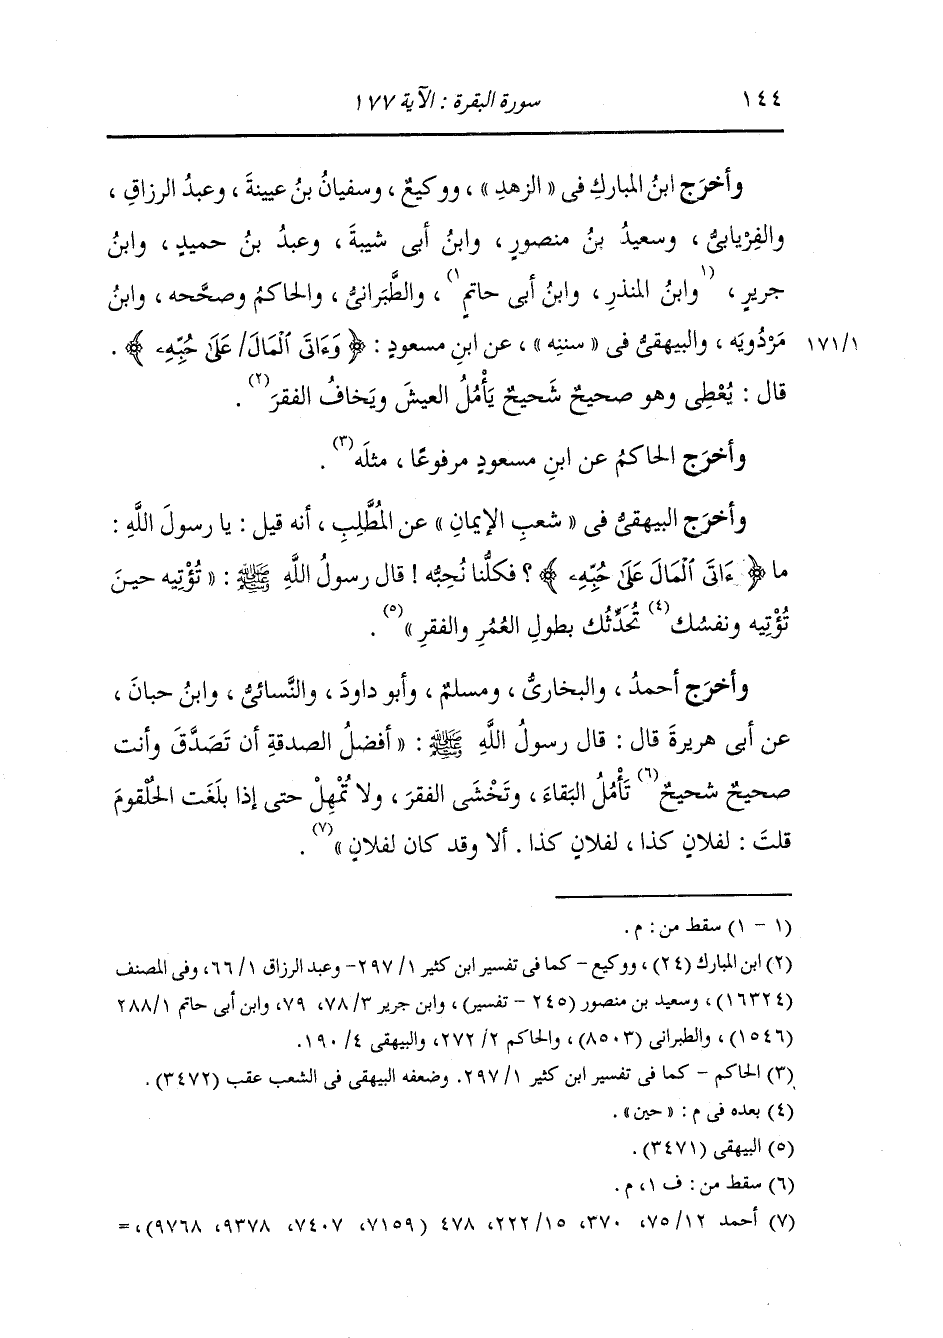 ١٤٤ سورة البقرة : الآية ١٧٧
وأخرَج ابنُ المباركِ فى « الزهدِ » ، ووكيعٌ ، وسفيانُ بنُ عيينةَ ، وعبدُ الرزاقِ ،
والفِرْيابىُّ ، وسعيدُ بنُ منصورٍ ، وابنُ أبى شيبةَ ، وعبدُ بنُ حميدٍ ، وابنُ
جريرٍ ، (١وابنُ المنذرِ ، وابنُ أبى حاتمٍ١) ، والطَّبَرانىُّ ، والحاكمُ وصحَّحه ، وابنُ
١/ ١٧١ مَرْدُويَه ، والبيهقىُّ فى « سننِه » ، عن ابنِ مسعودٍ : ﴿ وَءَاتَى ٱلْمَالَ/ عَلَىٰ حُبِّهِۦ ﴾ .
قال : يُعْطِى وهو صحيحٌ شَحيحٌ يَأْمُلُ العيشَ ويَخافُ الفقرَ(٢) .
وأخرَج الحاكمُ عن ابنِ مسعودٍ مرفوعًا ، مثلَه(٣) .
وأخرَج البيهقىُّ فى « شعبِ الإيمانِ » عن المُطَّلِبِ ، أنه قيل : يا رسولَ اللَّهِ :
ما ﴿ ءَاتَى ٱلْمَالَ عَلَىٰ حُبِّهِۦ ﴾ ؟ فكلُّنا نُحِبُّه ! قال رسولُ اللَّهِ ﷺ : « تُؤْتِيه حينَ
تُؤْتِيه ونفسُك(٤) تُحَدِّثُك بطولِ العُمُرِ والفقرِ »(٥) .
وأخرَج أحمدُ ، والبخارىُّ ، ومسلمٌ ، وأبو داودَ ، والنَّسائىُّ ، وابنُ حبانَ ،
عن أبى هريرةَ قال : قال رسولُ اللَّهِ ﷺ : « أفضلُ الصدقةِ أن تَصَدَّقَ وأنت
صحيحٌ شحيحٌ(٦) تَأْمُلُ البَقاءَ ، وتَخْشَى الفقرَ ، ولا تُمْهِلْ حتى إذا بلَغَت الحُلْقومَ
قلتَ : لفلانٍ كذا ، لفلانٍ كذا . ألا وقد كان لفلانٍ »(٧) .
(١ - ١) سقط من : م .
(٢) ابن المبارك (٢٤) ، ووكيع - كما فى تفسير ابن كثير ١/ ٢٩٧- وعبد الرزاق ١/ ٦٦، وفى المصنف
(١٦٣٢٤) ، وسعيد بن منصور (٢٤٥ - تفسير) ، وابن جرير ٣/ ٧٨، ٧٩، وابن أبى حاتم ١/ ٢٨٨
(١٥٤٦) ، والطبرانى (٨٥٠٣) ، والحاكم ٢/ ٢٧٢، والبيهقى ٤/ ١٩٠.
(٣) الحاكم - كما فى تفسير ابن كثير ١/ ٢٩٧. وضعفه البيهقى فى الشعب عقب (٣٤٧٢) .
(٤) بعده فى م : « حين» .
(٥) البيهقى (٣٤٧١) .
(٦) سقط من : ف ١، م .
(٧) أحمد ١٢/ ٧٥، ٣٧٠، ١٥/ ٢٢٢، ٤٧٨ (٧١٥٩، ٧٤٠٧، ٩٣٧٨، ٩٧٦٨) ، =